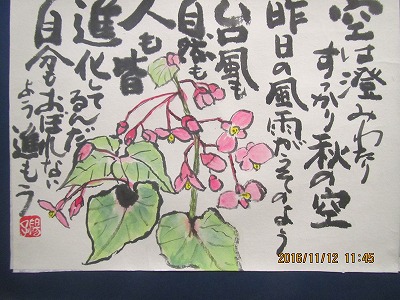 空は澄みわたり
すっかり秋の空
昨日の風雨がうそのよう
台風も
自然も
人も皆
進化してるんだ
自分もおぼれない
よう進もう
2016/11/12 11:45